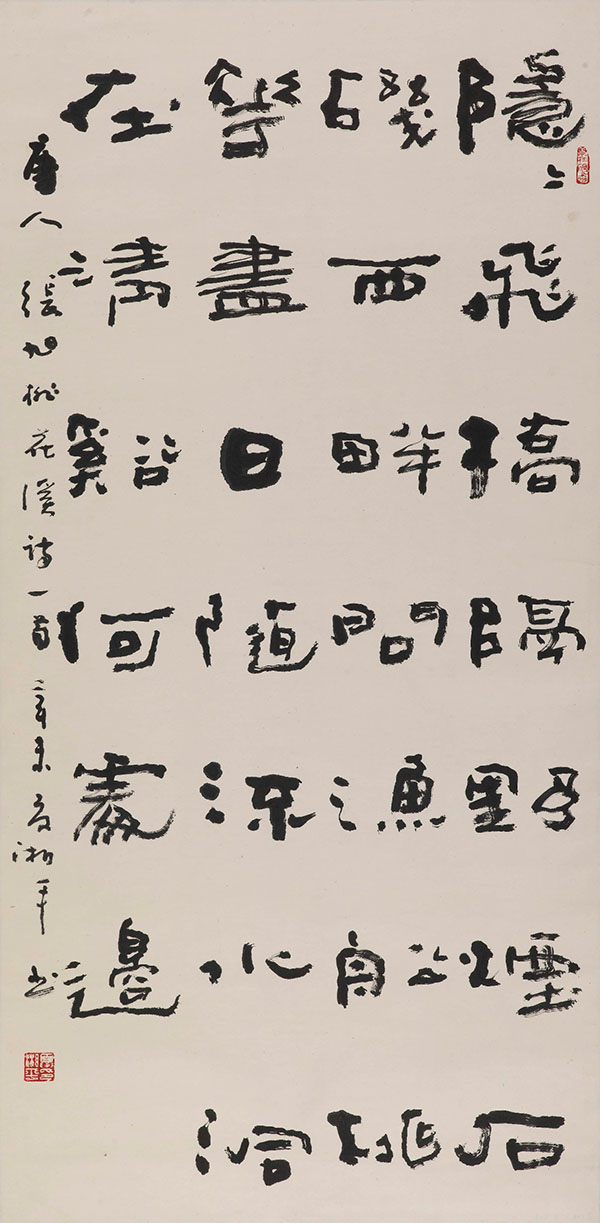 隱〻飛橋隔野煙石
磯西畔問漁船桃
花盡日隨流水洞
在清谿何處邊
唐人張旭桃花溪詩一首 辛未夏湘平书